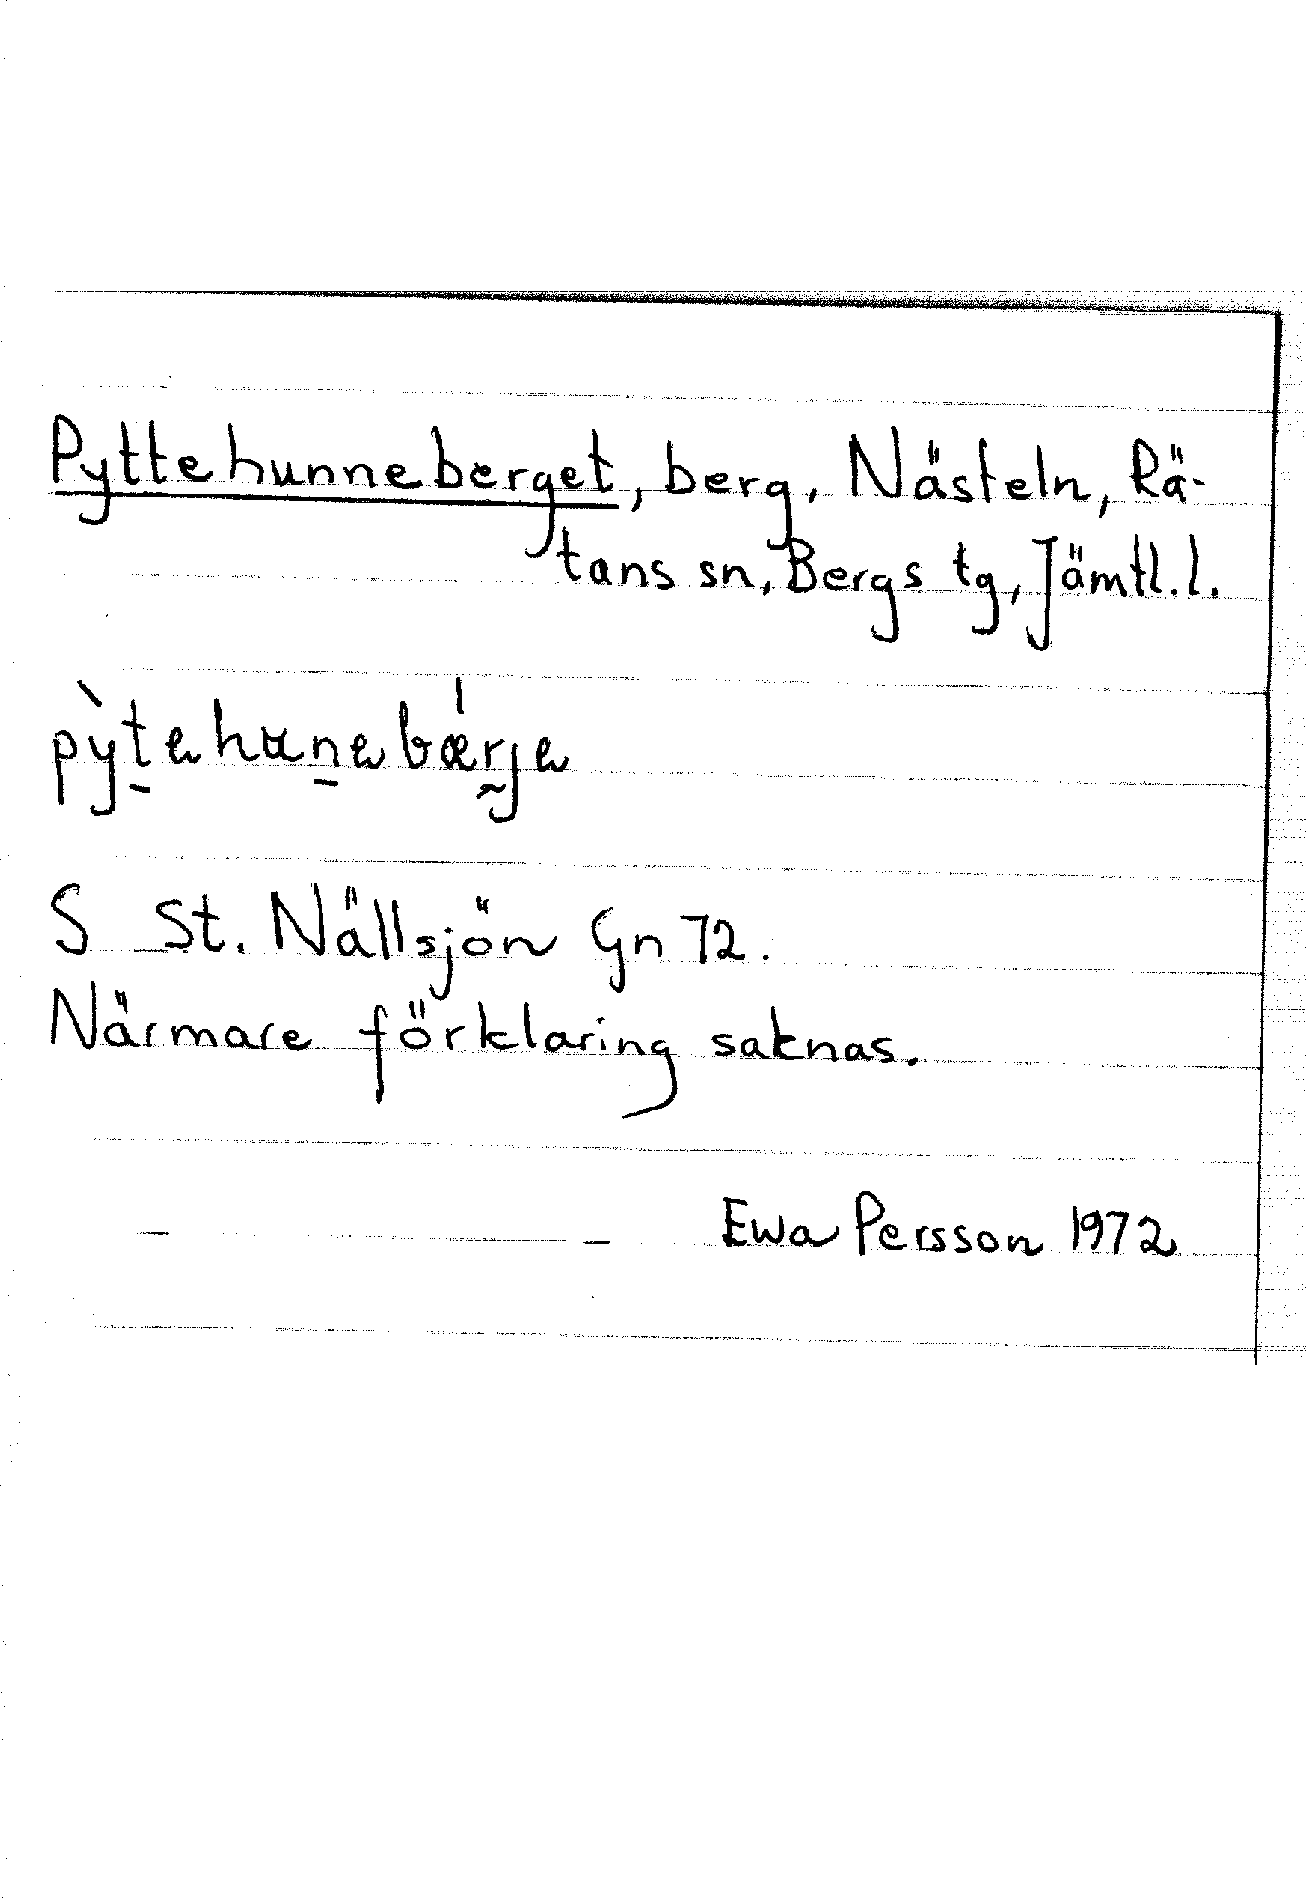 Pyttehunneberget, berg, Nästeln, Rä-
tans sn, Bergs tg, Jämtl. l.
pỳtehunebærje
S St. Nällsjön Gn 72.
Närmare förklaring saknas.
Ewa Persson 1972